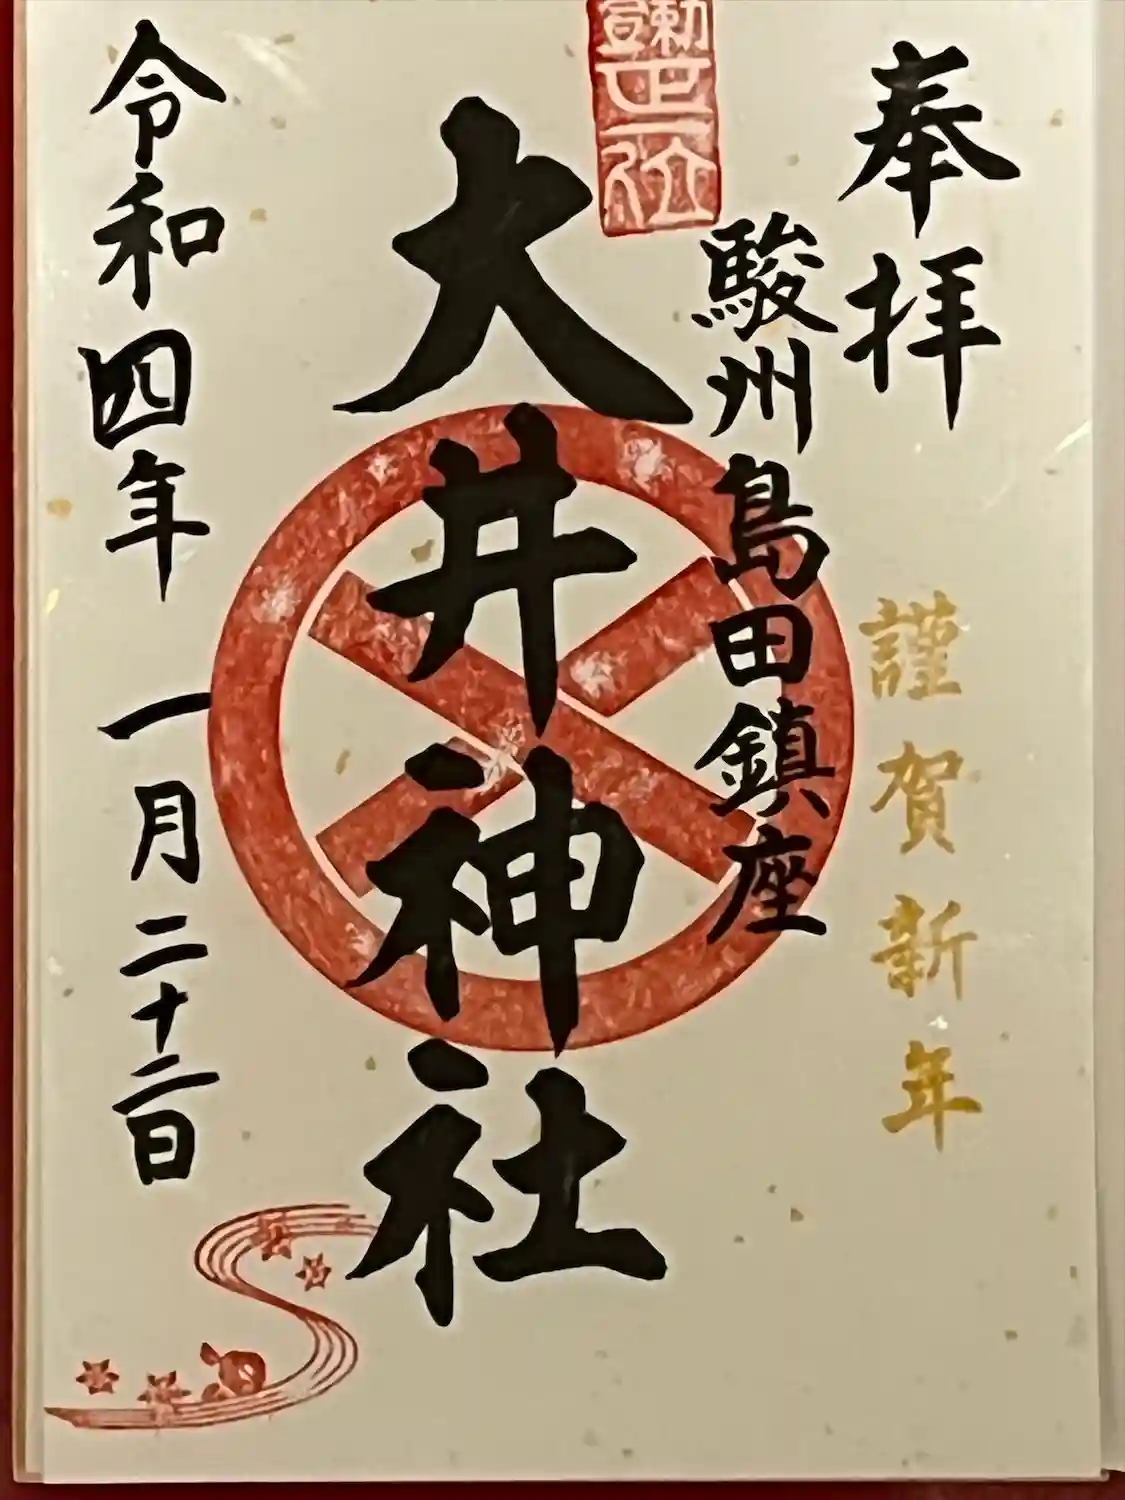 奉拝
謹賀新年
勅宣正一位
駿州島田鎮座
大井神社
令和四年一月二十二日